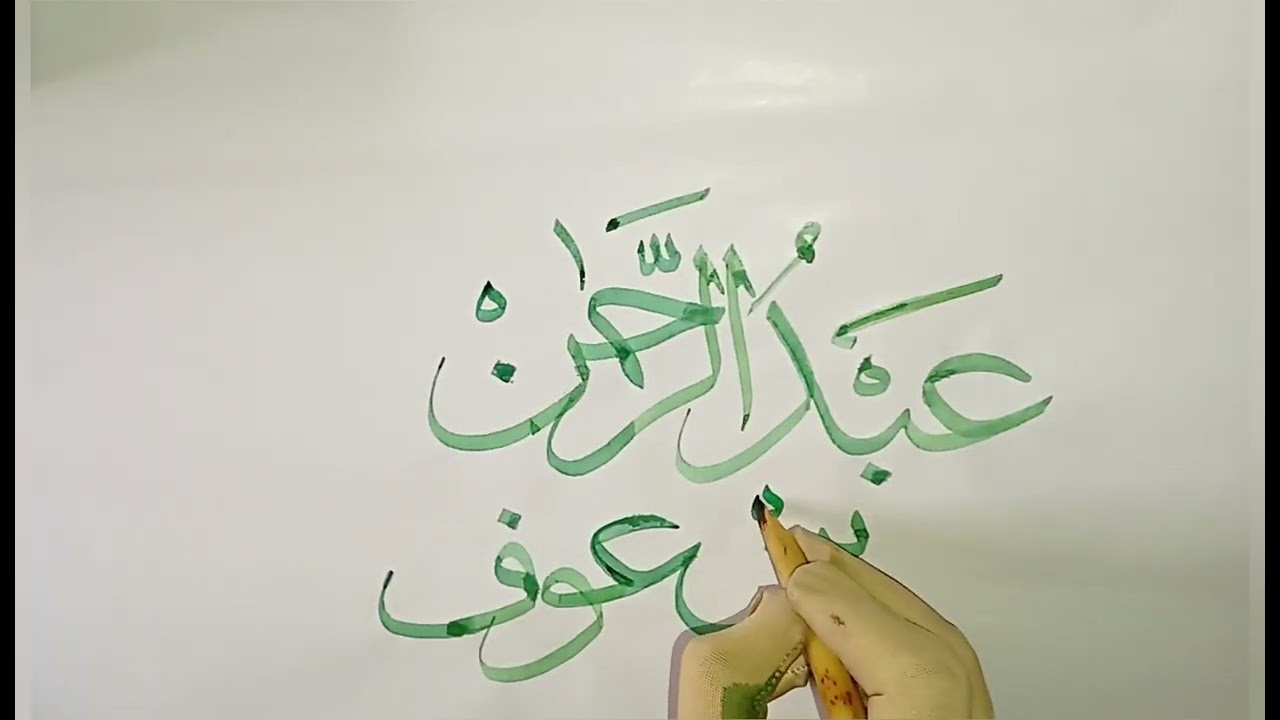 عَبْدُ الرَّحمٰنْ
بن عوف